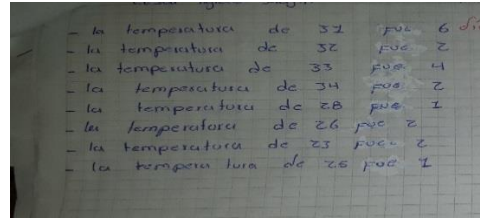 - la temperatura de 31 fue 6 di
- la temperatura de 32 fue 2
- la temperatura de 33 fue 4
- la temperatura de 34 fue 2
- la temperatura de 28 fue 1
- la temperatura de 26 fue 2
- la temperatura de 23 fue 2
- la tempera tura de 25 fue 1